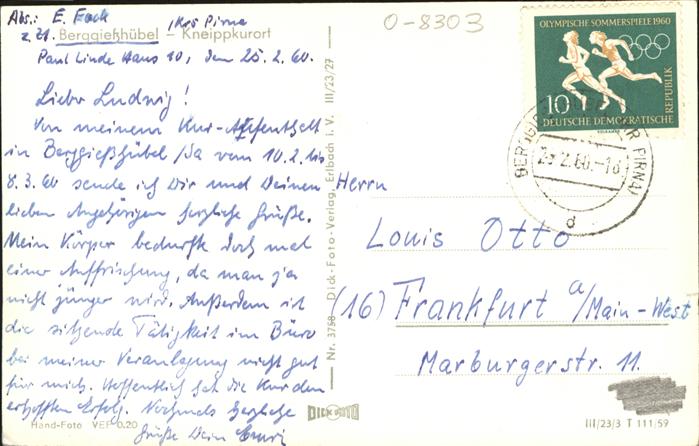 Abs.: E. Fock
z. Zt. Berggießhübel – Kneippkurort
/Krs Pirna
Paul Linde Haus 10, den 25.2.60.
Lieber Ludwig!
Von meinem Kur-Aufenthalt
in Berggießhübel /Sa vom 10.2. bis
8.3.60 sende ich Dir und Deinen
lieben Angehörigen herzliche Grüße.
Mein Körper bedurfte doch mal
einer Auffrischung, da man ja
nicht jünger wird. Außerdem ist
die sitzende Tätigkeit im Büro
bei meiner Veranlagung nicht gut
für mich. Hoffentlich hat die Kur den
erhofften Erfolg. Nochmals herzliche
Grüße Dein
Hand-Foto VEP 0.20
Nr. 3758 Dick-Foto-Verlag, Erlbach i. V. III/23/27
DICK FOTO
0-8303
OLYMPISCHE SOMMERSPIELE 1960
10
DEUTSCHE DEMOKRATISCHE
REPUBLIK
PIRNA)
2.60.-18
d
Herrn
Louis Otto
(16) Frankfurt a/Main-West
Marburgerstr. 11.
III/23/3 T 111/59